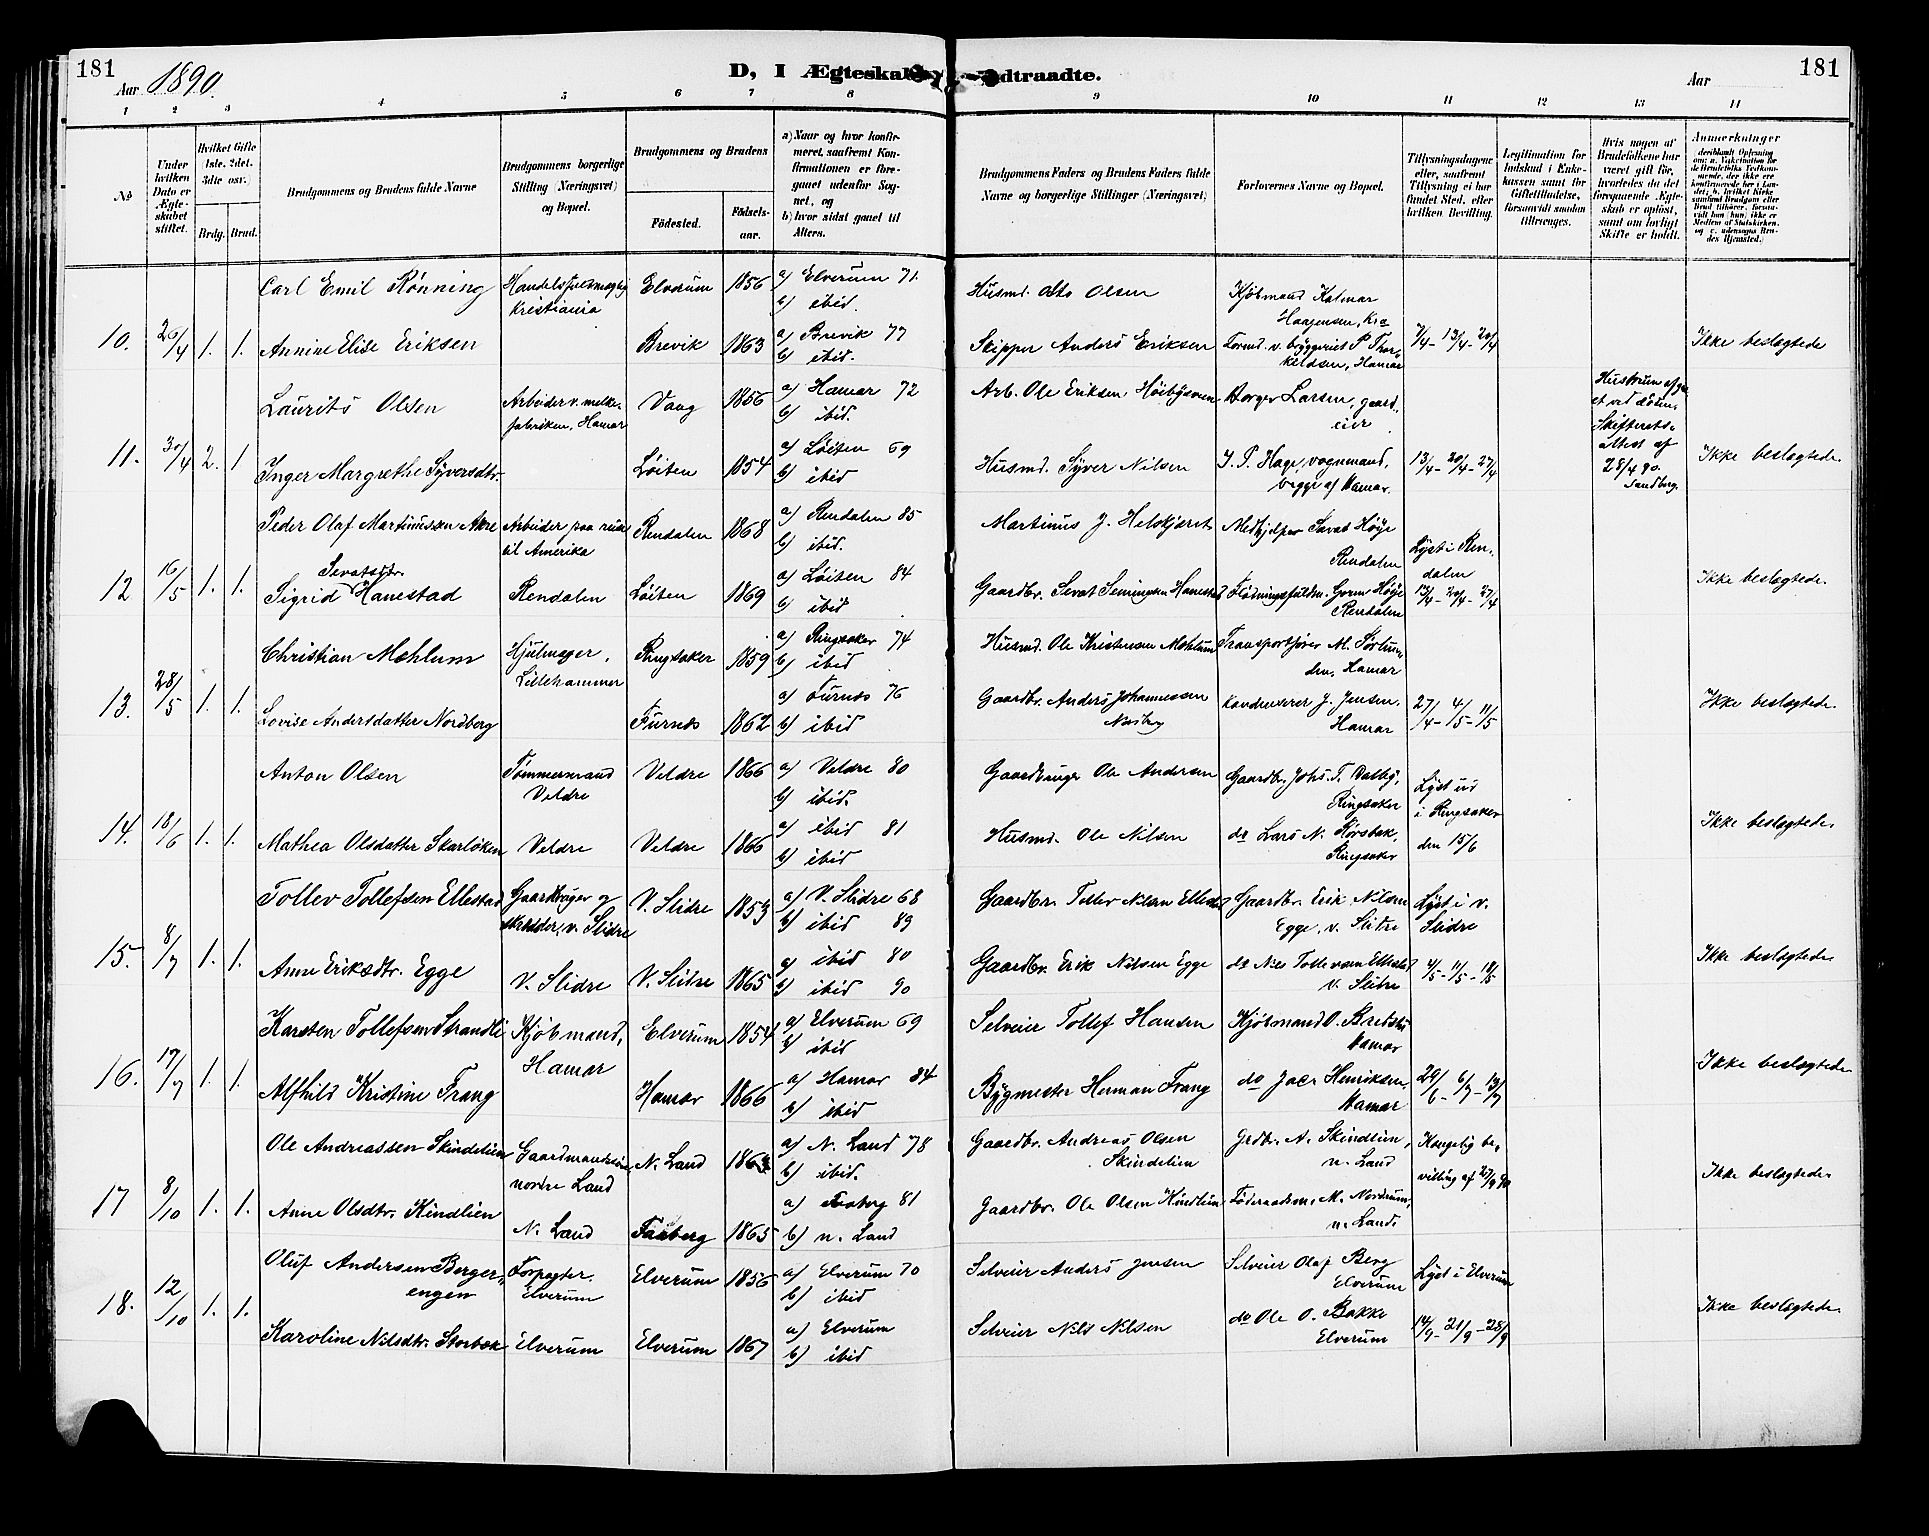 181
Aar 1890.
D, I Ægteskab
dtraadte.
Aar
181
1 2 3 4 5 6 7 8 9 10 11 12 13 14
No
Under hvilken Dato er Ægteskabet stiftet.
Hvilket Gifte 1ste, 2det, 3die osv.)
Brdg. Brud.
Brudgommens og Brudens fulde Navne
Brudgommens borgerlige Stilling (Næringsvei) og Bopæl.
Brudgommens og Brudens
Fødested.
Fødselsaar.
a) Naar og hvor konfirmeret, saafremt Konfirmationen er foregaaet udenfor Sognet, og
b) hvor sidst gaaet til Alters.
Brudgommens Faders og Brudens Faders fulde Navne og borgerlige Stillinger (Næringsvei)
Forlovernes Navne og Bopæl.
Tillysningsdagene eller, saafremt Tillysning ei har fundet Sted, efter hvilken Bevilling.
Legitimation for Indskud i Enkekassen samt for Giftetilladelse, forsaavidt saadan tiltrænges.
Hvis nogen af Brudefolkene har været gift før, hvorledes da det foregaaende Ægteskab er opløst, samt om lovligt Skifte er holdt.
Anmerkninger
Carl Emil Rønning Handelsfuldmægtig Kristiania Elverum 1856 a) Elverum 71 b) ibid. Husmd. Otto Olsen Kjøbmand Kalmar Haagensen, Kra
10. 26/4 1. 1. Annine Elise Eriksen Brevik 1863 a) Brevik 77 b) ibid. Skipper Anders Eriksen Formd. v. bryggeriet P. Thorkeldsen, Hamar 7/4 - 13/4 - 20/4 Ikke beslægtede
Laurits Olsen Arbeider v. melkefabriken, Hamar Vang 1856 a) Hamar 72 b) ibid. Arb. Ole Eriksen Høibysveen Borger Larsen, gaardeier
Hustruen ved døden, Skifterets attest af 28/4 90. Sandberg.
11. 30/4 2. 1 Inger Margrethe Syversdtr. Løiten 1854 a) Løiten 69 b) ibid Husmd. Syver Nilsen J. P. Hage, vognmand, begge af Hamar. 13/4 - 20/4 - 27/4 Ikke beslægtede.
Peder Olaf Martinussen Akre Arbeider paa reise til Amerika Rendalen 1868 a) Rendalen 85 b) ibid. Martinus J. Helskjæret Medhjelper Sevat Høye Rendalen Lyst i Rendalen
12 16/5 1. 1. Sigrid Sevatsdtr. Hanestad Rendalen Løiten 1869 a) Løiten 84 b) ibid Gaardbr. Sevat Hanestad Høye Rendalen 13/4 - 20/4 - 27/4 Ikke beslægtede.
Christian Mæhlum Hjulmager, Lillehammer Ringsaker 1859 a) Ringsaker 74 b) ibid Husmd. Ole Kristensen Mæhlum Transportfører M. Sørlunden, Hamar
13. 28/5 1. 1. Lovise Andersdatter Nordberg Furnes 1862 a) Furnes 76 b) ibid Gaardbr. Anders Johannessen Norberg J. Jensen. Hamar 27/4 - 4/5 - 11/5 Ikke beslægtede.
Anton Olsen Tømmermand Veldre Veldre 1866 a) Veldre 80 b) ibid. Gaardbruger Ole Andersen Gaardbr. Johs. T. Dalby, Ringsaker Lyst ud i Ringsaker
14. 18/6 1. 1. Mathea Olsdatter Skarløken Veldre Veldre 1866 a) ibid 81 b) ibid Husmd. Ole Nilsen do Lars N. Kørsbak, Ringsaker den 15/6 Ikke beslægtede.
Tollev Tollefsen Ellestad Gaardbruger og v. Slidre V. Slidre 1853 a) V. Slidre 68 b) ibid 89 Gaardbr. Tollev Nilsen Ellestad Gaardbr. Erik Nilsen Egge, v. Slidre Lyst i v. Slidre
15. 8/7 1. 1. Anne Eriksdtr. Egge V. Slidre V. Slidre 1865 a) ibid 80 b) ibid 90 Gaardbr. Erik Nilsen Egge do Nils Tollevsen Ellestad v. Slidre 4/5 - 11/5 - 18/5 Ikke beslægtede
Karsten Tollefsen Strandli Kjøbmand, Hamar Elverum 1854 a) Elverum 69 b) ibid Selveier Tollef Hansen Kjøbmand O. Bredstu Hamar
16. 17/7 1. 1. Alfhild Kristine Frang Hamar 1866 a) Hamar 84 b) ibid Bygmester Herman Frang do Jac. Henriksen, Hamar 29/6 - 6/7 - 13/7 Ikke beslægtede
Ole Andreassen Skindelien Gaardmandssøn, nordre Land N. Land 1863 a) N. Land 78 b) ibid. Gaardbr. Andreas Olsen Skindelien Grdbr. A. Skindlien, n. Land Kongelig bevilling af 27/9 90
17 8/10 1. 1. Anne Olsdtr. Kindlien N. Land Faaberg 1865 a) Faaberg 81 b) n. Land Gaardbr. Ole Olsen Kindlien Føderaadsm. M. Nordrum, n. Land. Ikke beslægtede.
Oluf Andersen Bergerengen Forpagter. Elverum Elverum 1856 a) Elverum 70 b) ibid Selveier Anders Jensen Selveier Olaf Berg Elverum Lyst i Elverum
18. 12/10 1. 1. Karoline Nilsdtr. Storbæk Elverum Elverum 1867 a) Elverum b) ibid Selveier Nils Nilsen do Ole O. Bakke Elverum 14/9 - 21/9 - 28/9 Ikke beslægtede.